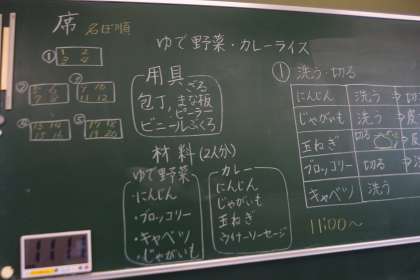 席 名ぼ順
① 1 2 3 4
② 5 6 7 8
③ 9 10 11 12
④ 13 14 15 16
⑤ 17 18 19 20
ゆで野菜・カレーライス
用具
ざる
包丁,まな板
ピーラー
ビニールぶくろ
材料(2人分)
ゆで野菜
・にんじん
・ブロッコリー
・キャベツ
・じゃがいも
カレー
にんじん
じゃがいも
玉ねぎ
ウィンナーソーセージ
① 洗う・切る
にんじん 洗う → 皮
じゃがいも 洗う → 皮
玉ねぎ 切る → 皮
ブロッコリー 切る → 洗
キャベツ 洗う
11:00〜